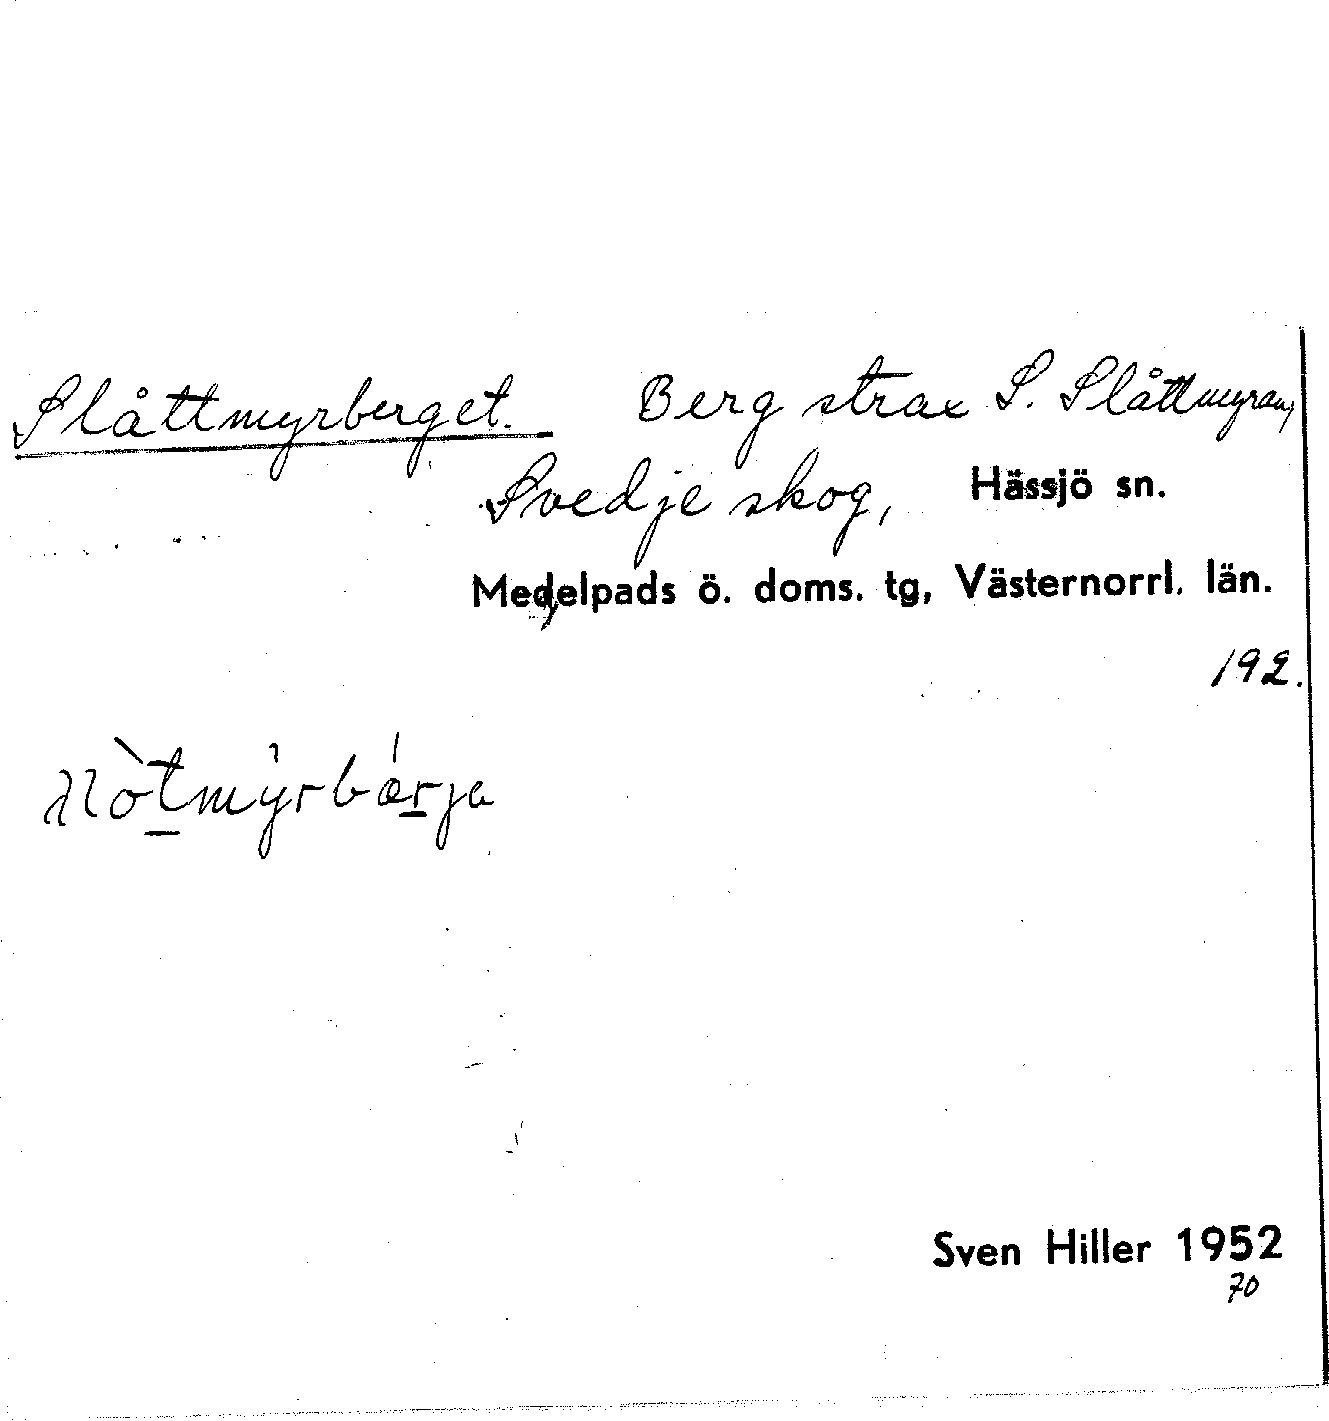 Slåttmyrberget. Berg strax S. Slåttmyran,
Svedje skog, Hässjö sn.
Medelpads ö. doms. tg, Västernorrl. län.
192.
Sven Hiller 1952
70